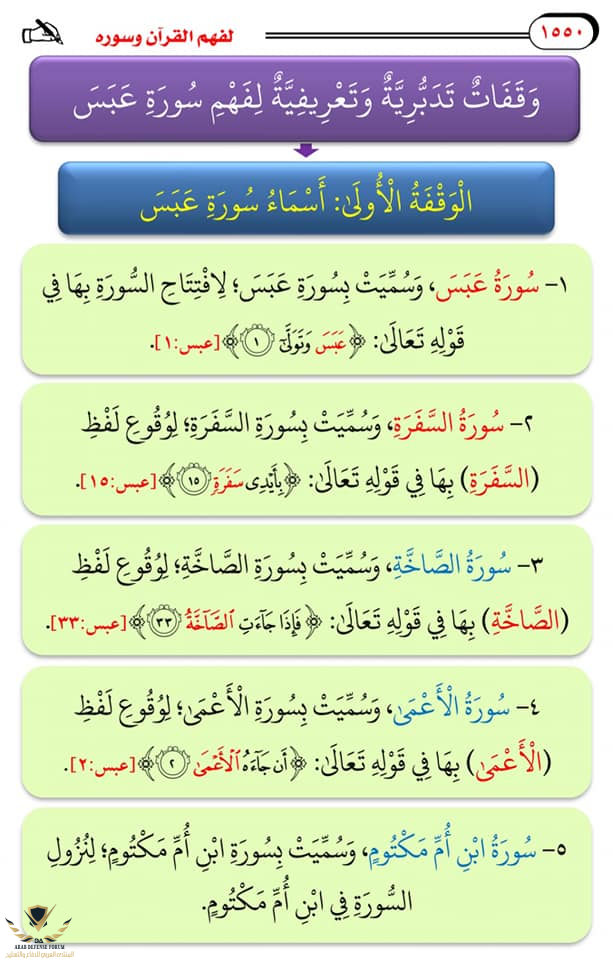 ١٥٥٠
لفهم القرآن وسوره
وَقَفَاتٌ تَدَبُّرِيَّةٌ وَتَعْرِيفِيَّةٌ لِفَهْمِ سُورَةِ عَبَسَ
الْوَقْفَةُ الْأُولَىٰ: أَسْمَاءُ سُورَةِ عَبَسَ
١- سُورَةُ عَبَسَ، وَسُمِّيَتْ بِسُورَةِ عَبَسَ؛ لِافْتِتَاحِ السُّورَةِ بِهَا فِي
قَوْلِهِ تَعَالَىٰ: ﴿عَبَسَ وَتَوَلَّىٰٓ ١﴾ [عبس:١].
٢- سُورَةُ السَّفَرَةِ، وَسُمِّيَتْ بِسُورَةِ السَّفَرَةِ؛ لِوُقُوعِ لَفْظِ
(السَّفَرَةِ) بِهَا فِي قَوْلِهِ تَعَالَىٰ: ﴿بِأَيْدِي سَفَرَةٍ ١٥﴾ [عبس:١٥].
٣- سُورَةُ الصَّاخَّةِ، وَسُمِّيَتْ بِسُورَةِ الصَّاخَّةِ؛ لِوُقُوعِ لَفْظِ
(الصَّاخَّةِ) بِهَا فِي قَوْلِهِ تَعَالَىٰ: ﴿فَإِذَا جَآءَتِ ٱلصَّآخَّةُ ٣٣﴾ [عبس:٣٣].
٤- سُورَةُ الْأَعْمَىٰ، وَسُمِّيَتْ بِسُورَةِ الْأَعْمَىٰ؛ لِوُقُوعِ لَفْظِ
(الْأَعْمَىٰ) بِهَا فِي قَوْلِهِ تَعَالَىٰ: ﴿أَن جَآءَهُ ٱلْأَعْمَىٰ ٢﴾ [عبس:٢].
٥- سُورَةُ ابْنِ أُمِّ مَكْتُومٍ، وَسُمِّيَتْ بِسُورَةِ ابْنِ أُمِّ مَكْتُومٍ؛ لِنُزُولِ
السُّورَةِ فِي ابْنِ أُمِّ مَكْتُومٍ.
ARAB DEFENSE FORUM
المنتدى العربي للدفاع والتسليح